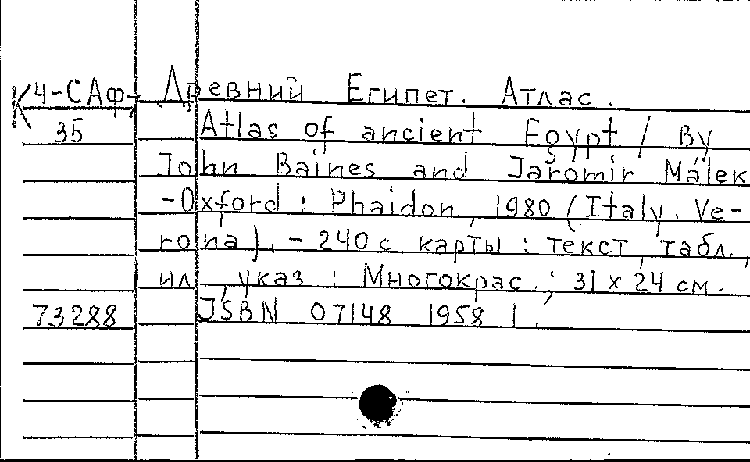 К4-САф- Древний Египет. Атлас.
35 Atlas of ancient Egypt / By
John Baines and Jaromir Málek
-Oxford : Phaidon, 1980 (Italy. Ve-
rona). - 240 с. карты : текст, табл.,
ил., указ : Многокрас.; 31 x 24 см.
73288 JSBN 07148 1958 1.